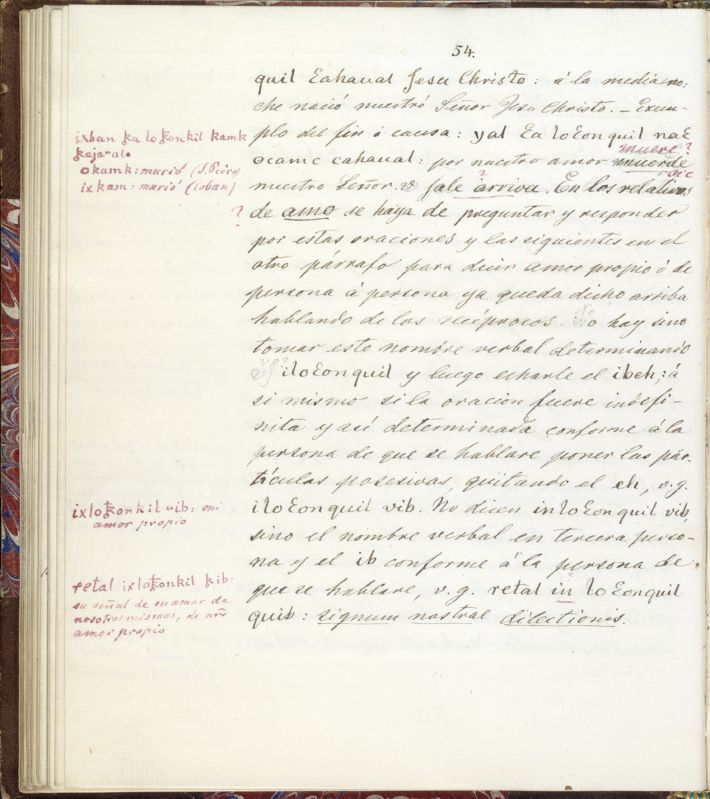 54.
quil Eahaual Jesu Christo: á la media no-
che nació nuestró Señor Jesu Christo. _ Exem-
plo del fin ó causa: yal Ea loEonquil naE
muere?
ocamc cahaual: por nuestro amor muerde
sic
nuestro Señor. vᵉ sale arriva. En los relativos
de amo se haya de preguntar y responder
por estas oraciones y las siguientes en el
otro párrafo para decir amor propio ó de
persona á persona ya queda dicho arriba
hablando de los recíprocos. No hay sino
tomar este nombre verbal determinando
v.g.? iloEonquil y luego echarle el ibeh; á
si mismo si la oracion fuere indefi-
nita y así determinada conforme á la
persona de que se hablare poner las par-
tículas posesivas, quitando el eh, v.g.
iloEonquil vib. No dicen inloEonquil vib,
sino el nombre verbal en tercera perso-
na y el ib conforme á la persona de
que se hablare, v.g. retal in loEonquil
quib: signum nostral dilectionis.
ixban ka lokonkil kamk
kajaual.
okamk: murió (S. Pedro)
ixkam: murió (Coban)
?
ixlokonkil uib: mi
amor propio
retal ixlokonkil kib:
su señal de su amor de
nosotros mismos, de nrõ
amor propio